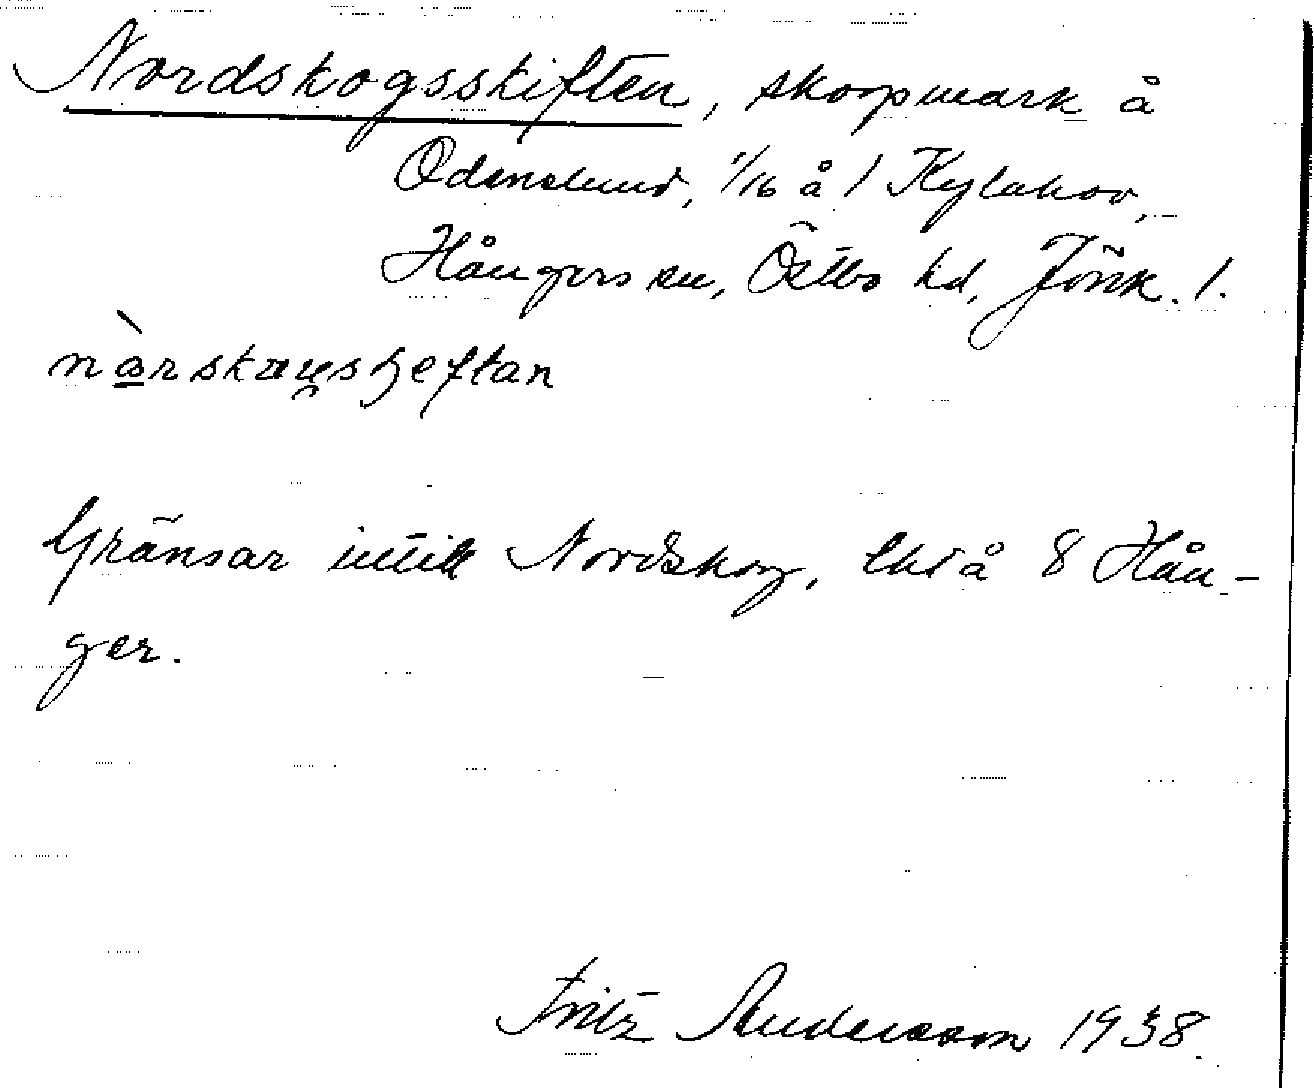 Nordskogsskiften, skogsmark å
Odenslund, 1/16 å 1 Kylahov,
Hångers sn, Östbo hd, Jönk. l.
Gränsar intill Nordskog, lht å 8 Hån-
ger.
Fritz Andersson 1938.